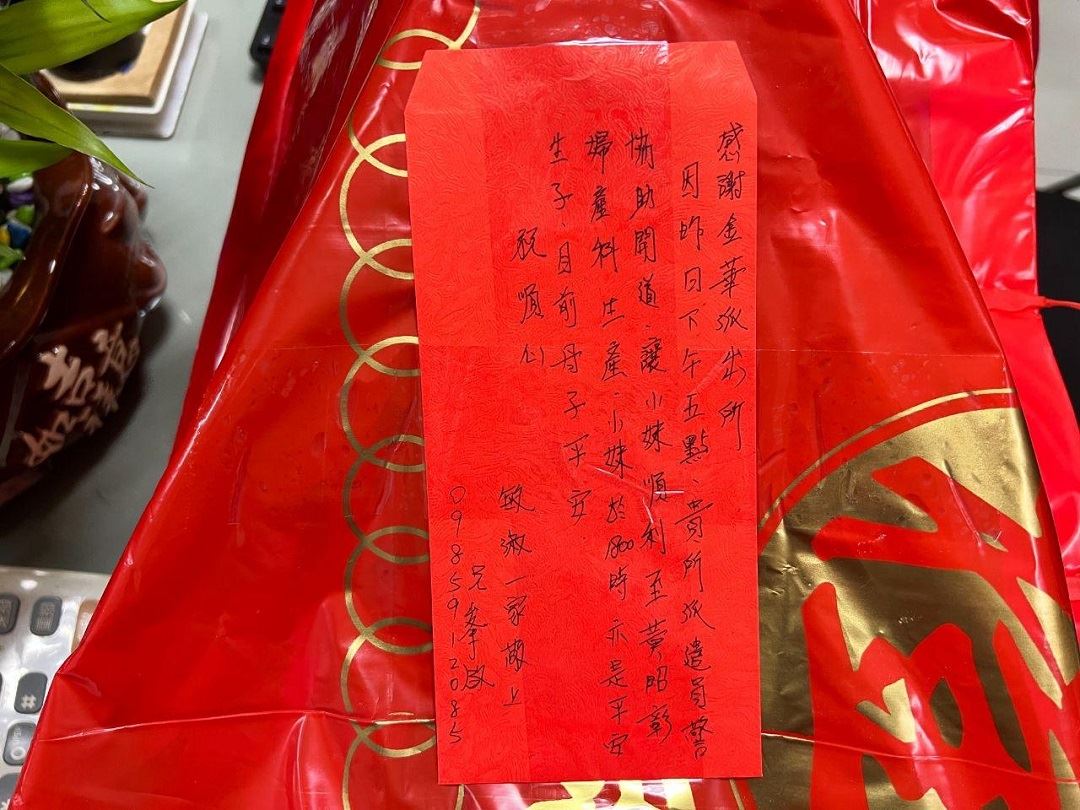 感謝金華派出所
因昨日下午五點、貴所派遣員警
協助開道、讓小妹順利至黃昭彰
婦產科生產、小妹於1800時亦是平安
生子、目前母子平安
祝順心
敏淑一家敬上
兄
0985912085